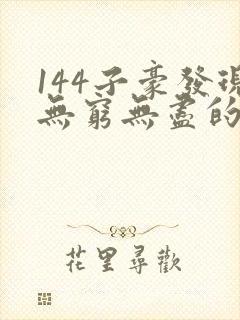 144子豪發現
無窮無盡的
花里尋歡